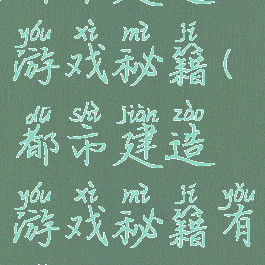 yóu xì mì jí
游戏秘籍(
dū shì jiàn zào
都市建造
yóu xì mì jí yǒu
游戏秘籍有